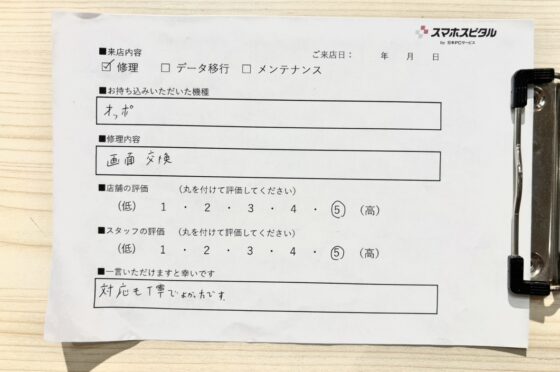 スマホスピタル
by 日本PCサービス
■来店内容
ご来店日： 年 月 日
☑ 修理 □ データ移行 □ メンテナンス
■お持ち込みいただいた機種
オッポ
■修理内容
画面 交換
■店舗の評価 （丸を付けて評価してください）
（低） 1 ・ 2 ・ 3 ・ 4 ・ 5 （高）
■スタッフの評価 （丸を付けて評価してください）
（低） 1 ・ 2 ・ 3 ・ 4 ・ 5 （高）
■一言いただけますと幸いです
対応も丁寧でよかったです。